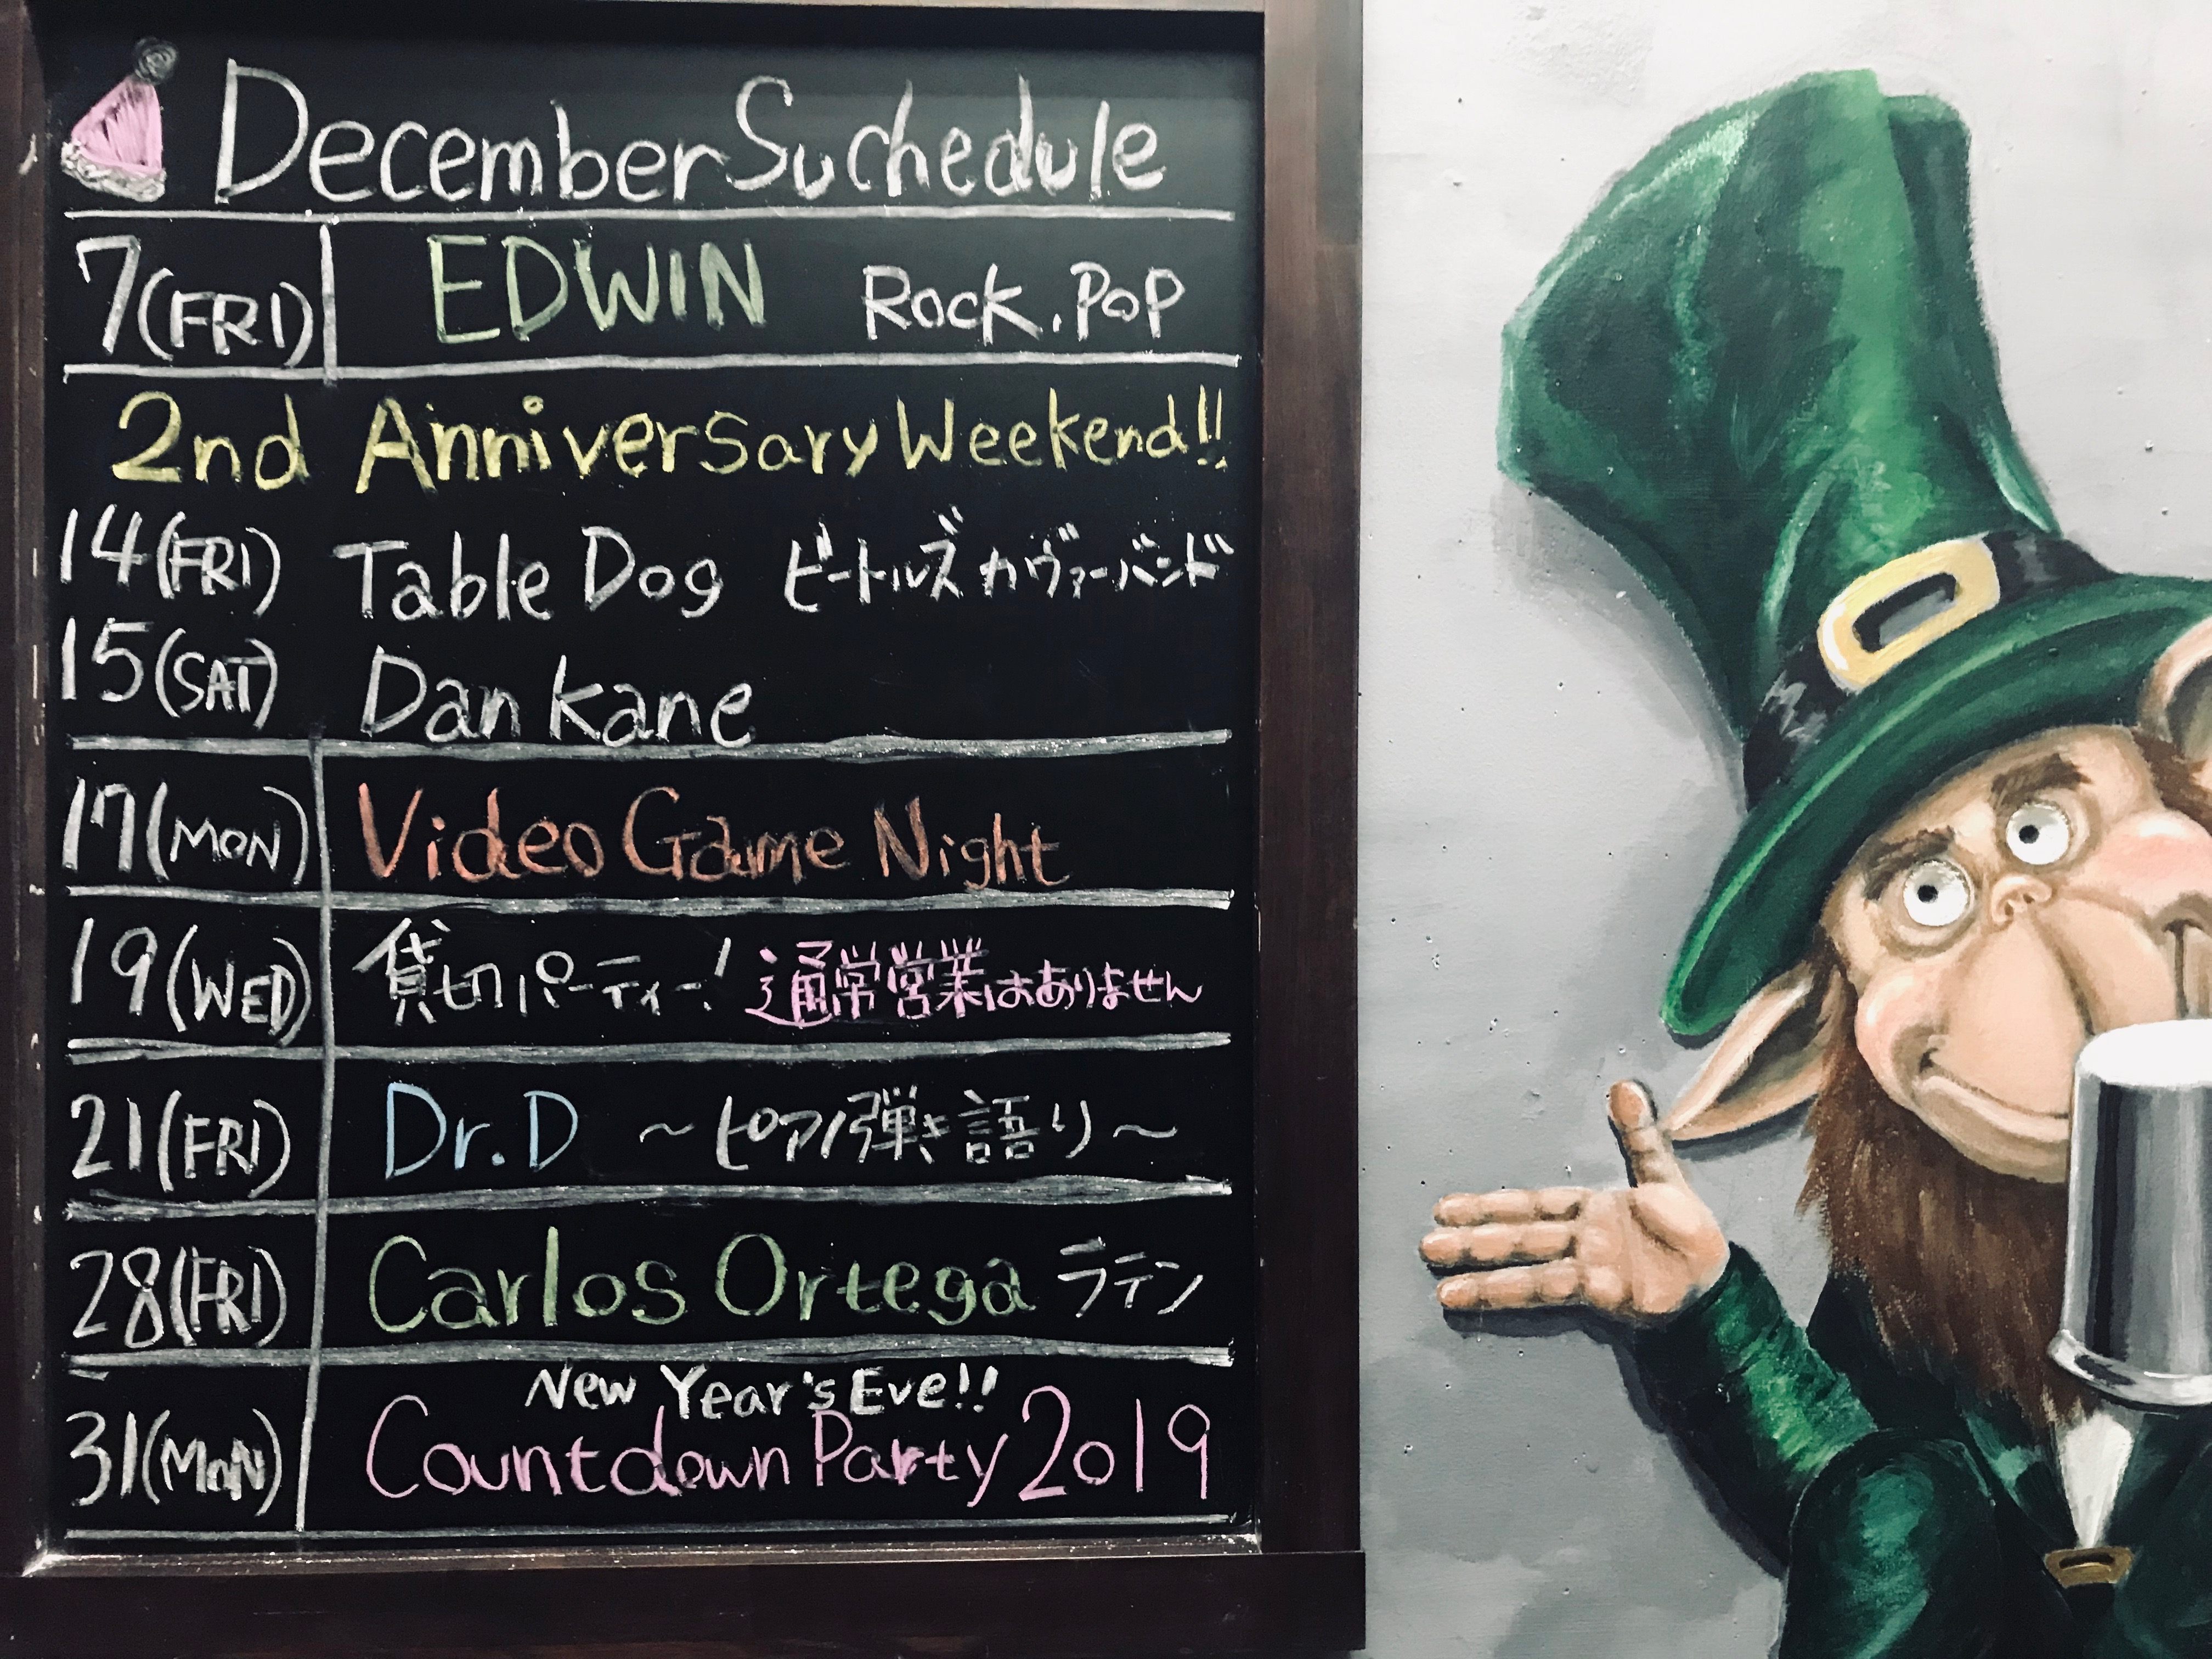 December Suchedule
7(FRI) EDWIN Rock.Pop
2nd Anniversary Weekend!!
14(FRI) Table Dog ビートルズカヴァーバンド
15(SAT) Dan Kane
17(MON) Video Game Night
19(WED) 貸切パーティー! 通常営業はありません
21(FRI) Dr.D ～ピアノ弾き語り～
28(FRI) Carlos Ortega ラテン
New Year's Eve!!
31(MON) Countdown Party 2019